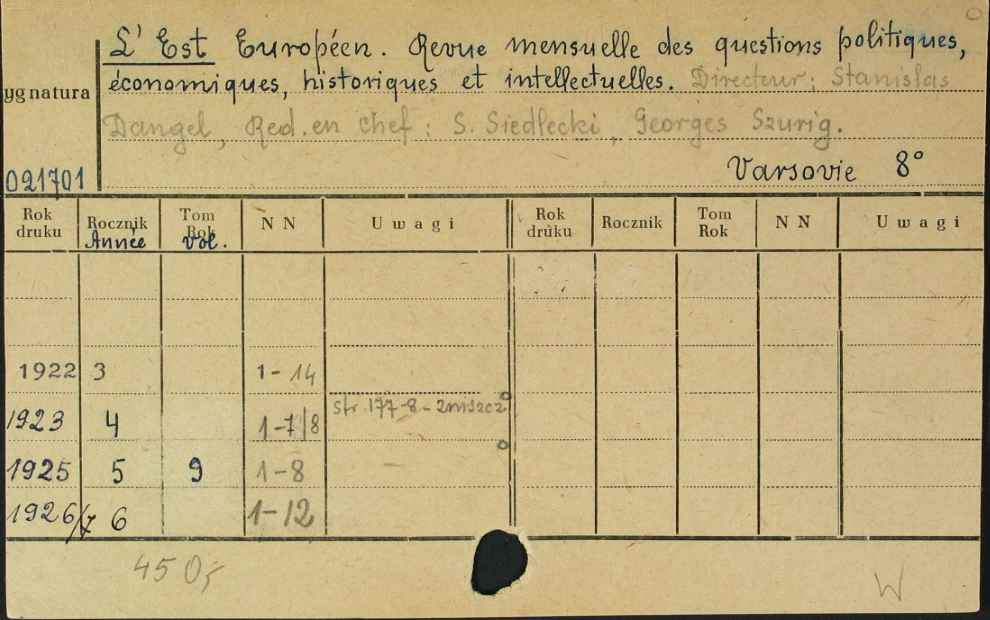 L' Est Européen. Revue mensuelle des questions politiques,
économiques, historiques et intellectuelles. Directeur: Stanislas
ygnatura
Dangel, Red. en chef: S. Siedlecki, Georges Szurig.
021701 Varsovie 8°
Rok druku Rocznik Année Tom Rok vol. N N Uwagi Rok druku Rocznik Tom Rok N N Uwagi
1922 3 1-14
str. 177-8 - zniszcz
1923 4 1-7/8
1925 5 9 1-8
1926/7 6 1-12
45 W